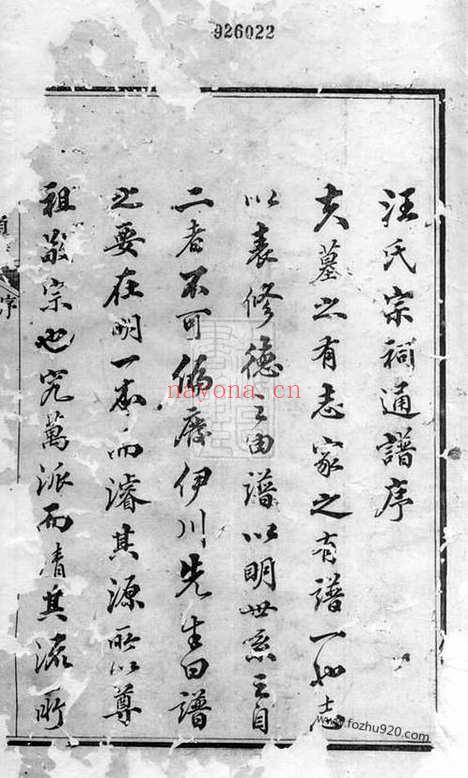 926022
汪氏宗祠通譜序
夫墓之有志家之有譜一也志
以表修德之由譜以明世系之自
二者不可偏廢伊川先生曰譜
之要在明一本而濬其源所以尊
祖敬宗也究萬派而清其流所
序
nayona.cn
www.fozhu920.com